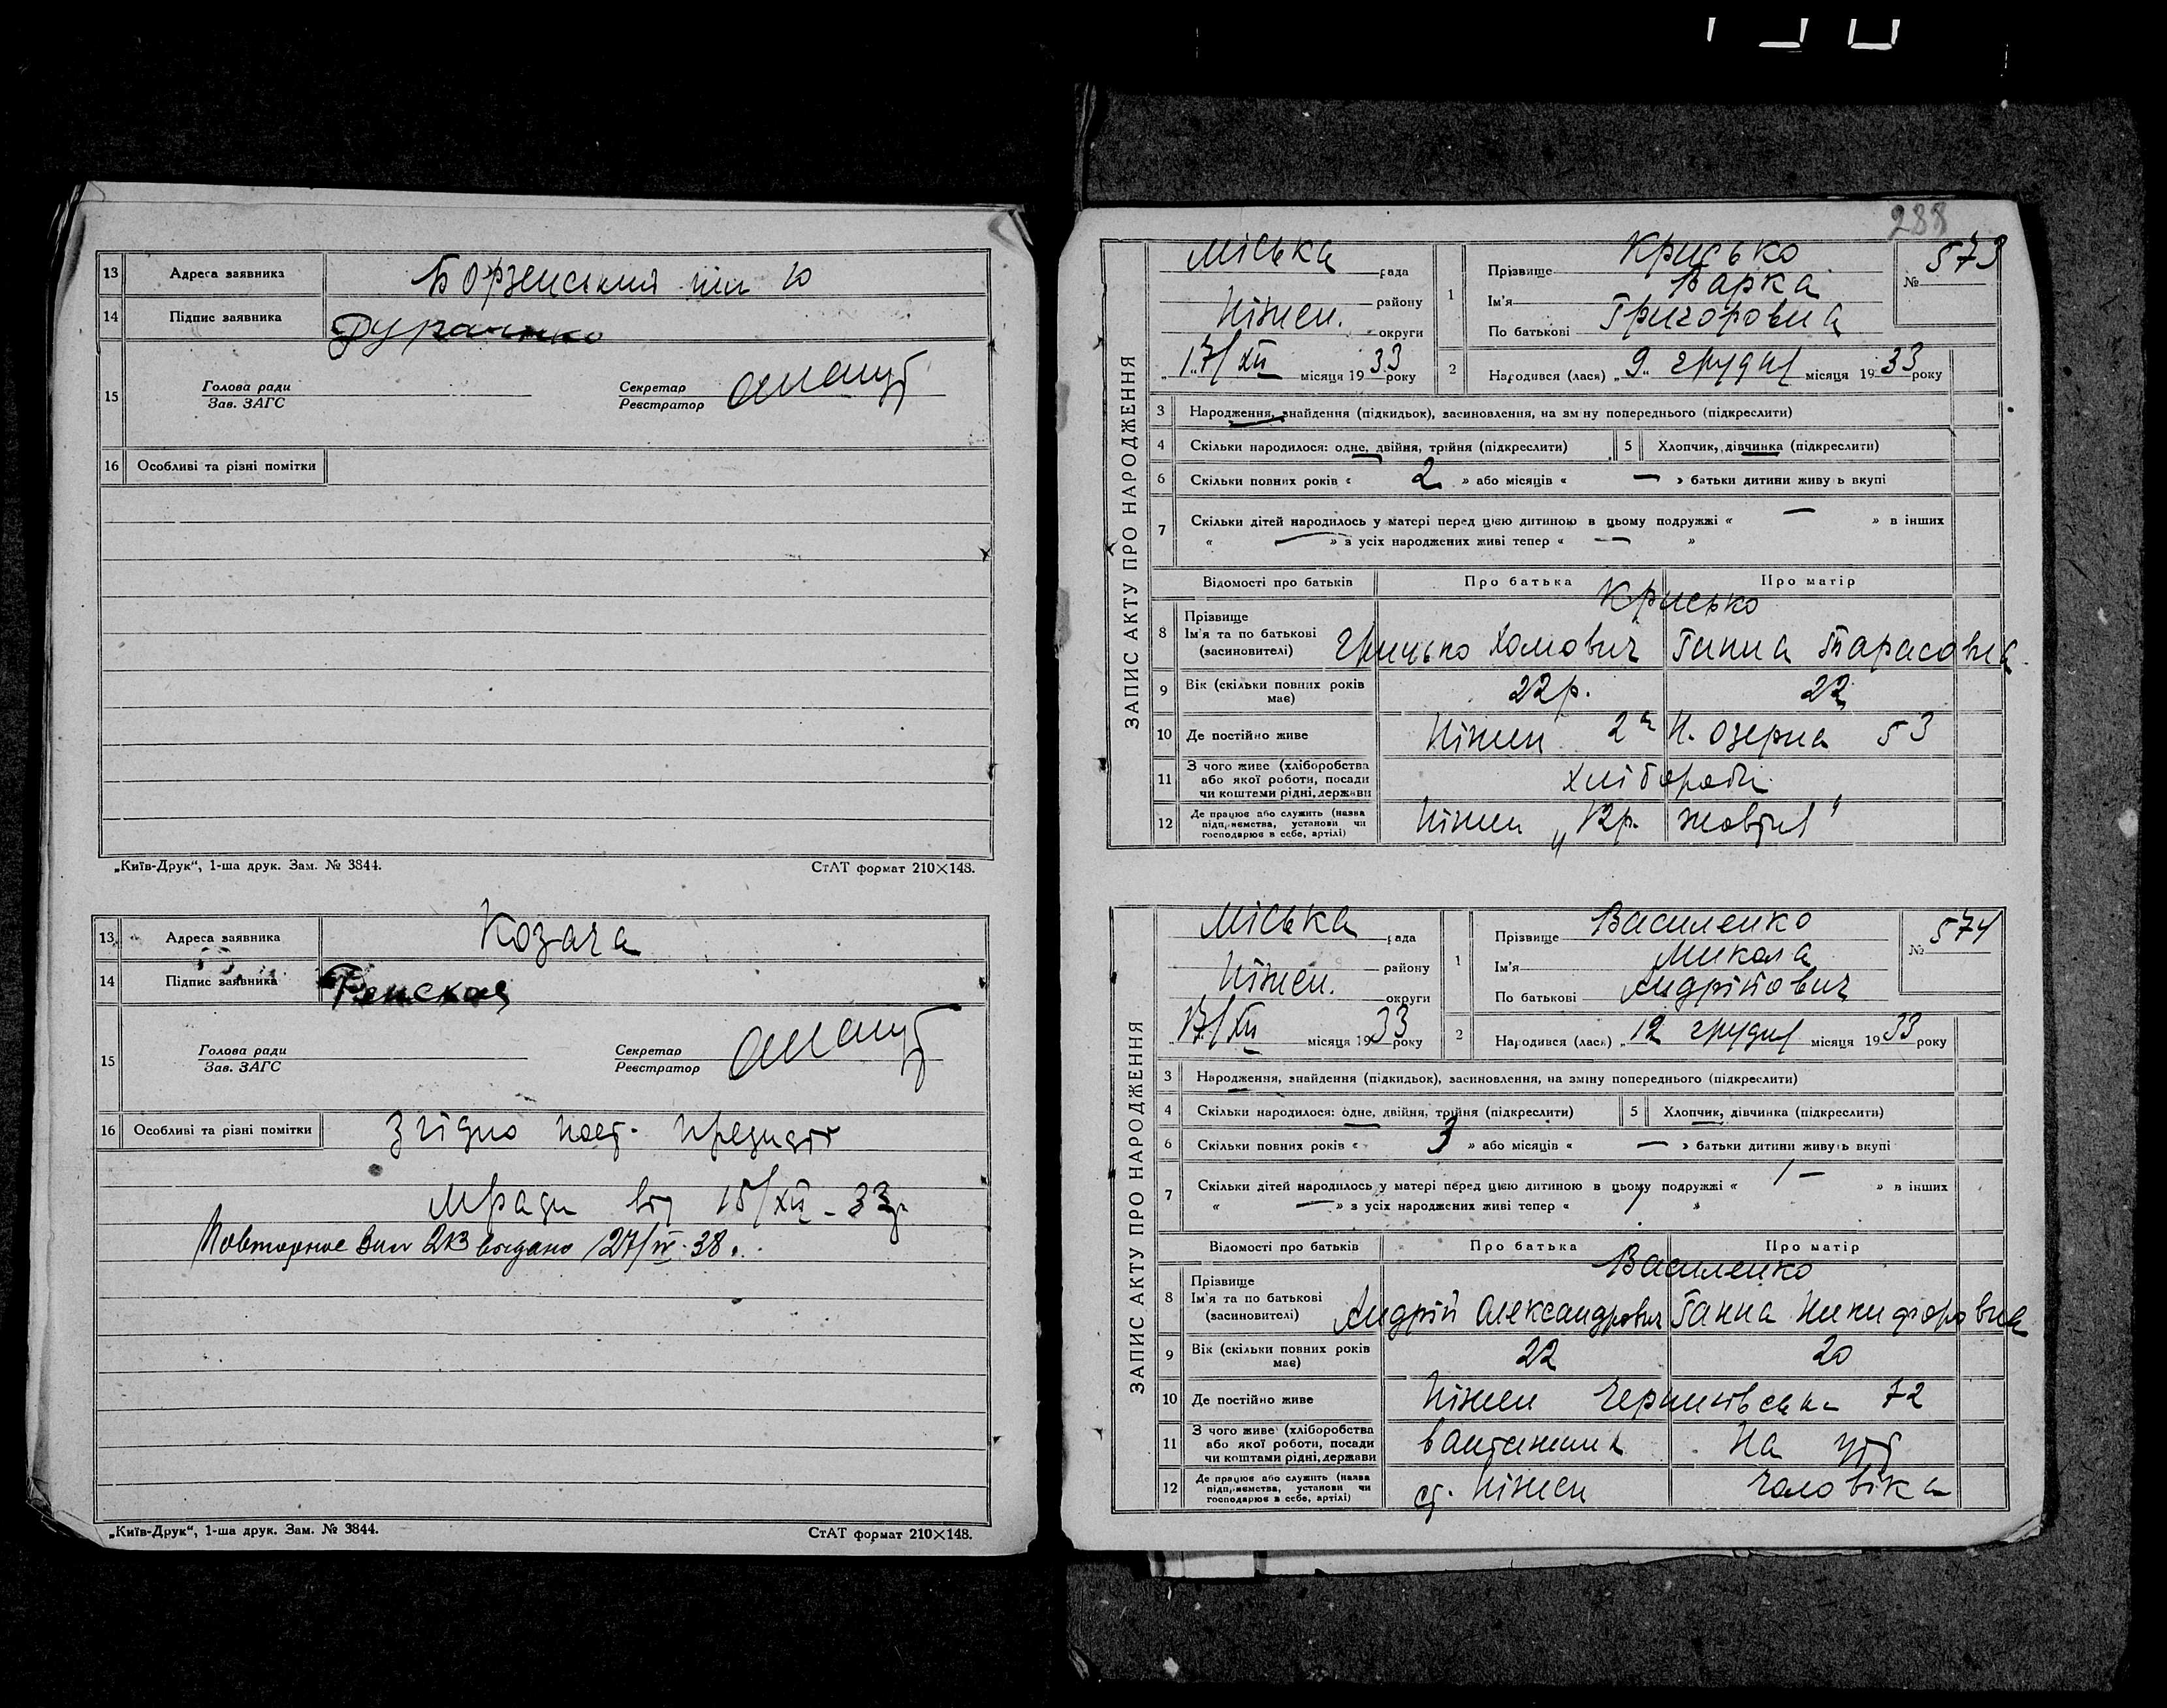 13 Адреса заявника Борзенський шл 10
14 Підпис заявника
15 Голова ради Секретар
Зав. ЗАГС Реєстратор
16 Особливі та різні помітки
„Київ-Друк“, 1-ша друк. Зам. № 3844. СтАТ формат 210×148.
13 Адреса заявника Козача
14 Підпис заявника
15 Голова ради Секретар
Зав. ЗАГС Реєстратор
16 Особливі та різні помітки Згідно пост. президії
мради від 15/XII - 33р.
Повторное выдано 27/IV-38.
„Київ-Друк“, 1-ша друк. Зам. № 3844. СтАТ формат 210×148.
288
ЗАПИС АКТУ ПРО НАРОДЖЕННЯ
Міська рада
Ніжен. району
округи
17/XII місяця 1933 року
1 Прізвище Крисько
Ім'я Варка
По батькові Григоровна
№ 573
2 Народився (лася) „9“ грудня місяця 1933 року
3 Народження, знайдення (підкидьок), засиновлення, на зміну попереднього (підкреслити)
4 Скільки народилося: одне, двійня, трійня (підкреслити) 5 Хлопчик, дівчинка (підкреслити)
6 Скільки повних років « 2 » або місяців « — » батьки дитини живуть вкупі
7 Скільки дітей народилось у матері перед цією дитиною в цьому подружжі « — » в інших
« — » з усіх народжених живі тепер « — »
Відомості про батьків Про батька Про матір
Крисько
8 Прізвище
Ім'я та по батькові
(засиновителі) Грицько Хомович Ганна Тарасовна
9 Вік (скільки повних років має) 22р. 22
10 Де постійно живе Ніжен 2а Н. Озерна 53
11 З чого живе (хліборобства
або якої роботи, посади
чи коштами рідні, держави
хлібороби
12 Де працює або служить (назва
підприємства, установи чи
господарює в себе, артілі) Ніжен „Жовтня“
ЗАПИС АКТУ ПРО НАРОДЖЕННЯ
Міська рада
Ніжен. району
округи
17/XII місяця 1933 року
1 Прізвище Василенко
Ім'я Микола
По батькові Андрійович
№ 574
2 Народився (лася) „12 грудня місяця 1933 року
3 Народження, знайдення (підкидьок), засиновлення, на зміну попереднього (підкреслити)
4 Скільки народилося: одне, двійня, трійня (підкреслити) 5 Хлопчик, дівчинка (підкреслити)
6 Скільки повних років « 3 » або місяців « — » батьки дитини живуть вкупі
7 Скільки дітей народилось у матері перед цією дитиною в цьому подружжі « 1 — » в інших
« — » з усіх народжених живі тепер « 1 »
Відомості про батьків Про батька Про матір
Василенко
8 Прізвище
Ім'я та по батькові
(засиновителі) Андрій Александрович Ганна Никифоровна
9 Вік (скільки повних років має) 22 20
10 Де постійно живе Ніжен 72
11 З чого живе (хліборобства
або якої роботи, посади
чи коштами рідні, держави
вантажник На утр
12 Де працює або служить (назва
підприємства, установи чи
господарює в себе, артілі) ст. Ніжен чоловіка